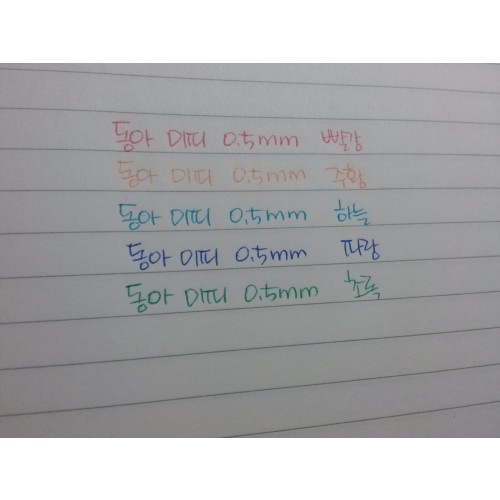 동아 미띠 0.5mm 빨강
동아 미띠 0.5mm 주황
동아 미띠 0.5mm 하늘
동아 미띠 0.5mm 파랑
동아 미띠 0.5mm 초록